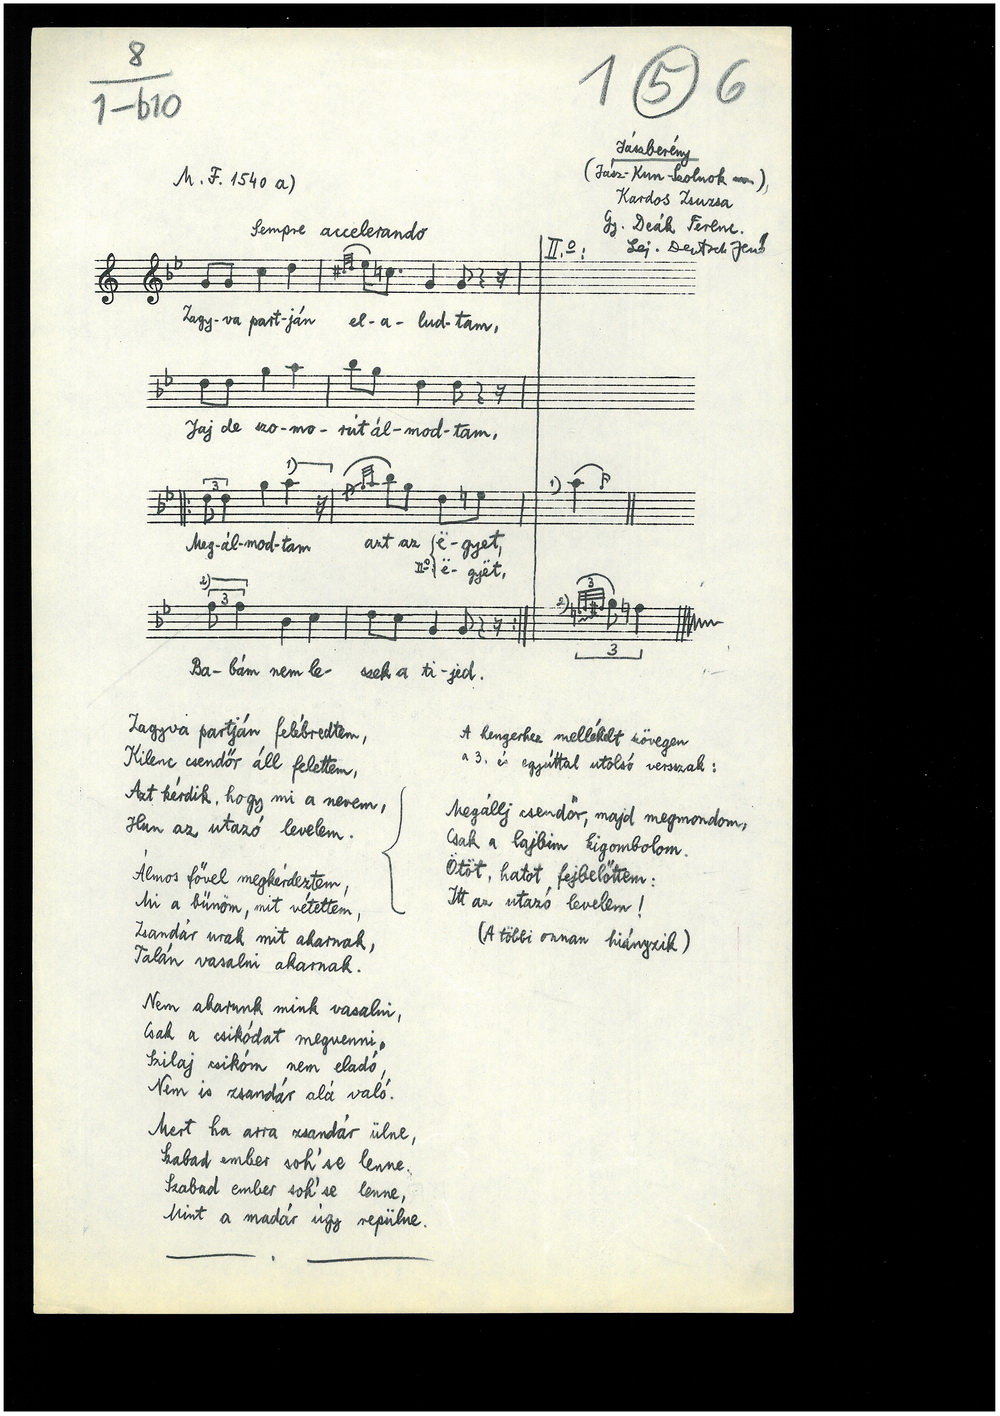 8
1-610
1 5 6
Jászberény
(Jász-Kun-Szolnok),
Kardos Zsuzsa
Gy. Deák Ferenc.
Lej. Deutsch Jenő
M. F. 1540 a)
Sempre accelerando
II.o:
Zagy-va part-ján el-a-lud-tam,
Jaj de szo-mo-rút ál-mod-tam,
3
1)
1)
Meg-ál-mod-tam azt az ë-gyet,
IIo ë-gyët,
2)
3
2)
3
3
Ba-bám nem le-szek a ti-jed.
Zagyva partján felébredtem,
Kilenc csendőr áll felettem,
Azt kérdik, hogy mi a nevem,
Hun az utazó levelem.
Álmos fővel megkérdeztem,
Mi a bűnöm, mit vétettem,
Zsandár urak mit akarnak,
Talán vasalni akarnak.
Nem akarunk mink vasalni,
Csak a csikódat megvenni,
Szilaj csikóm nem eladó,
Nem is zsandár alá való.
Mert ha arra zsandár ülne,
Szabad ember soh'se lenne.
Szabad ember soh'se lenne,
Mint a madár úgy repülne.
A hengerhez mellékelt szövegen
a 3. és egyúttal utolsó versszak:
Megállj csendőr, majd megmondom,
Csak a lajbim kigombolom.
Ötöt, hatot fejbelőttem:
Itt az utazó levelem!
(A többi onnan hiányzik)